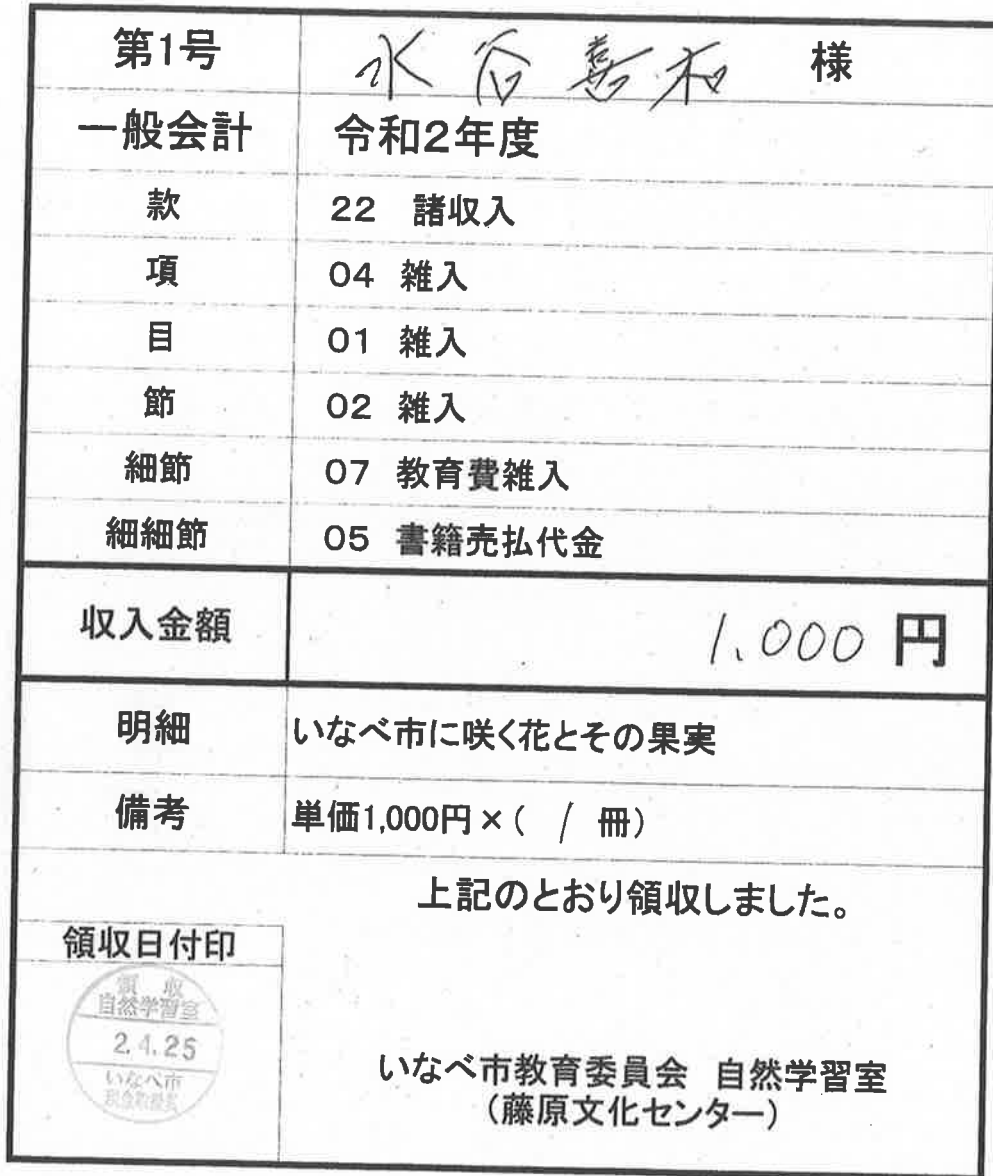 第1号 水谷善和 様
一般会計 令和2年度
款 22 諸収入
項 04 雑入
目 01 雑入
節 02 雑入
細節 07 教育費雑入
細細節 05 書籍売払代金
収入金額 1.000 円
明細 いなべ市に咲く花とその果実
備考 単価1,000円×( 1 冊)
上記のとおり領収しました。
領収日付印
領収
自然学習室
2.4.25
いなべ市
いなべ市教育委員会 自然学習室
(藤原文化センター)